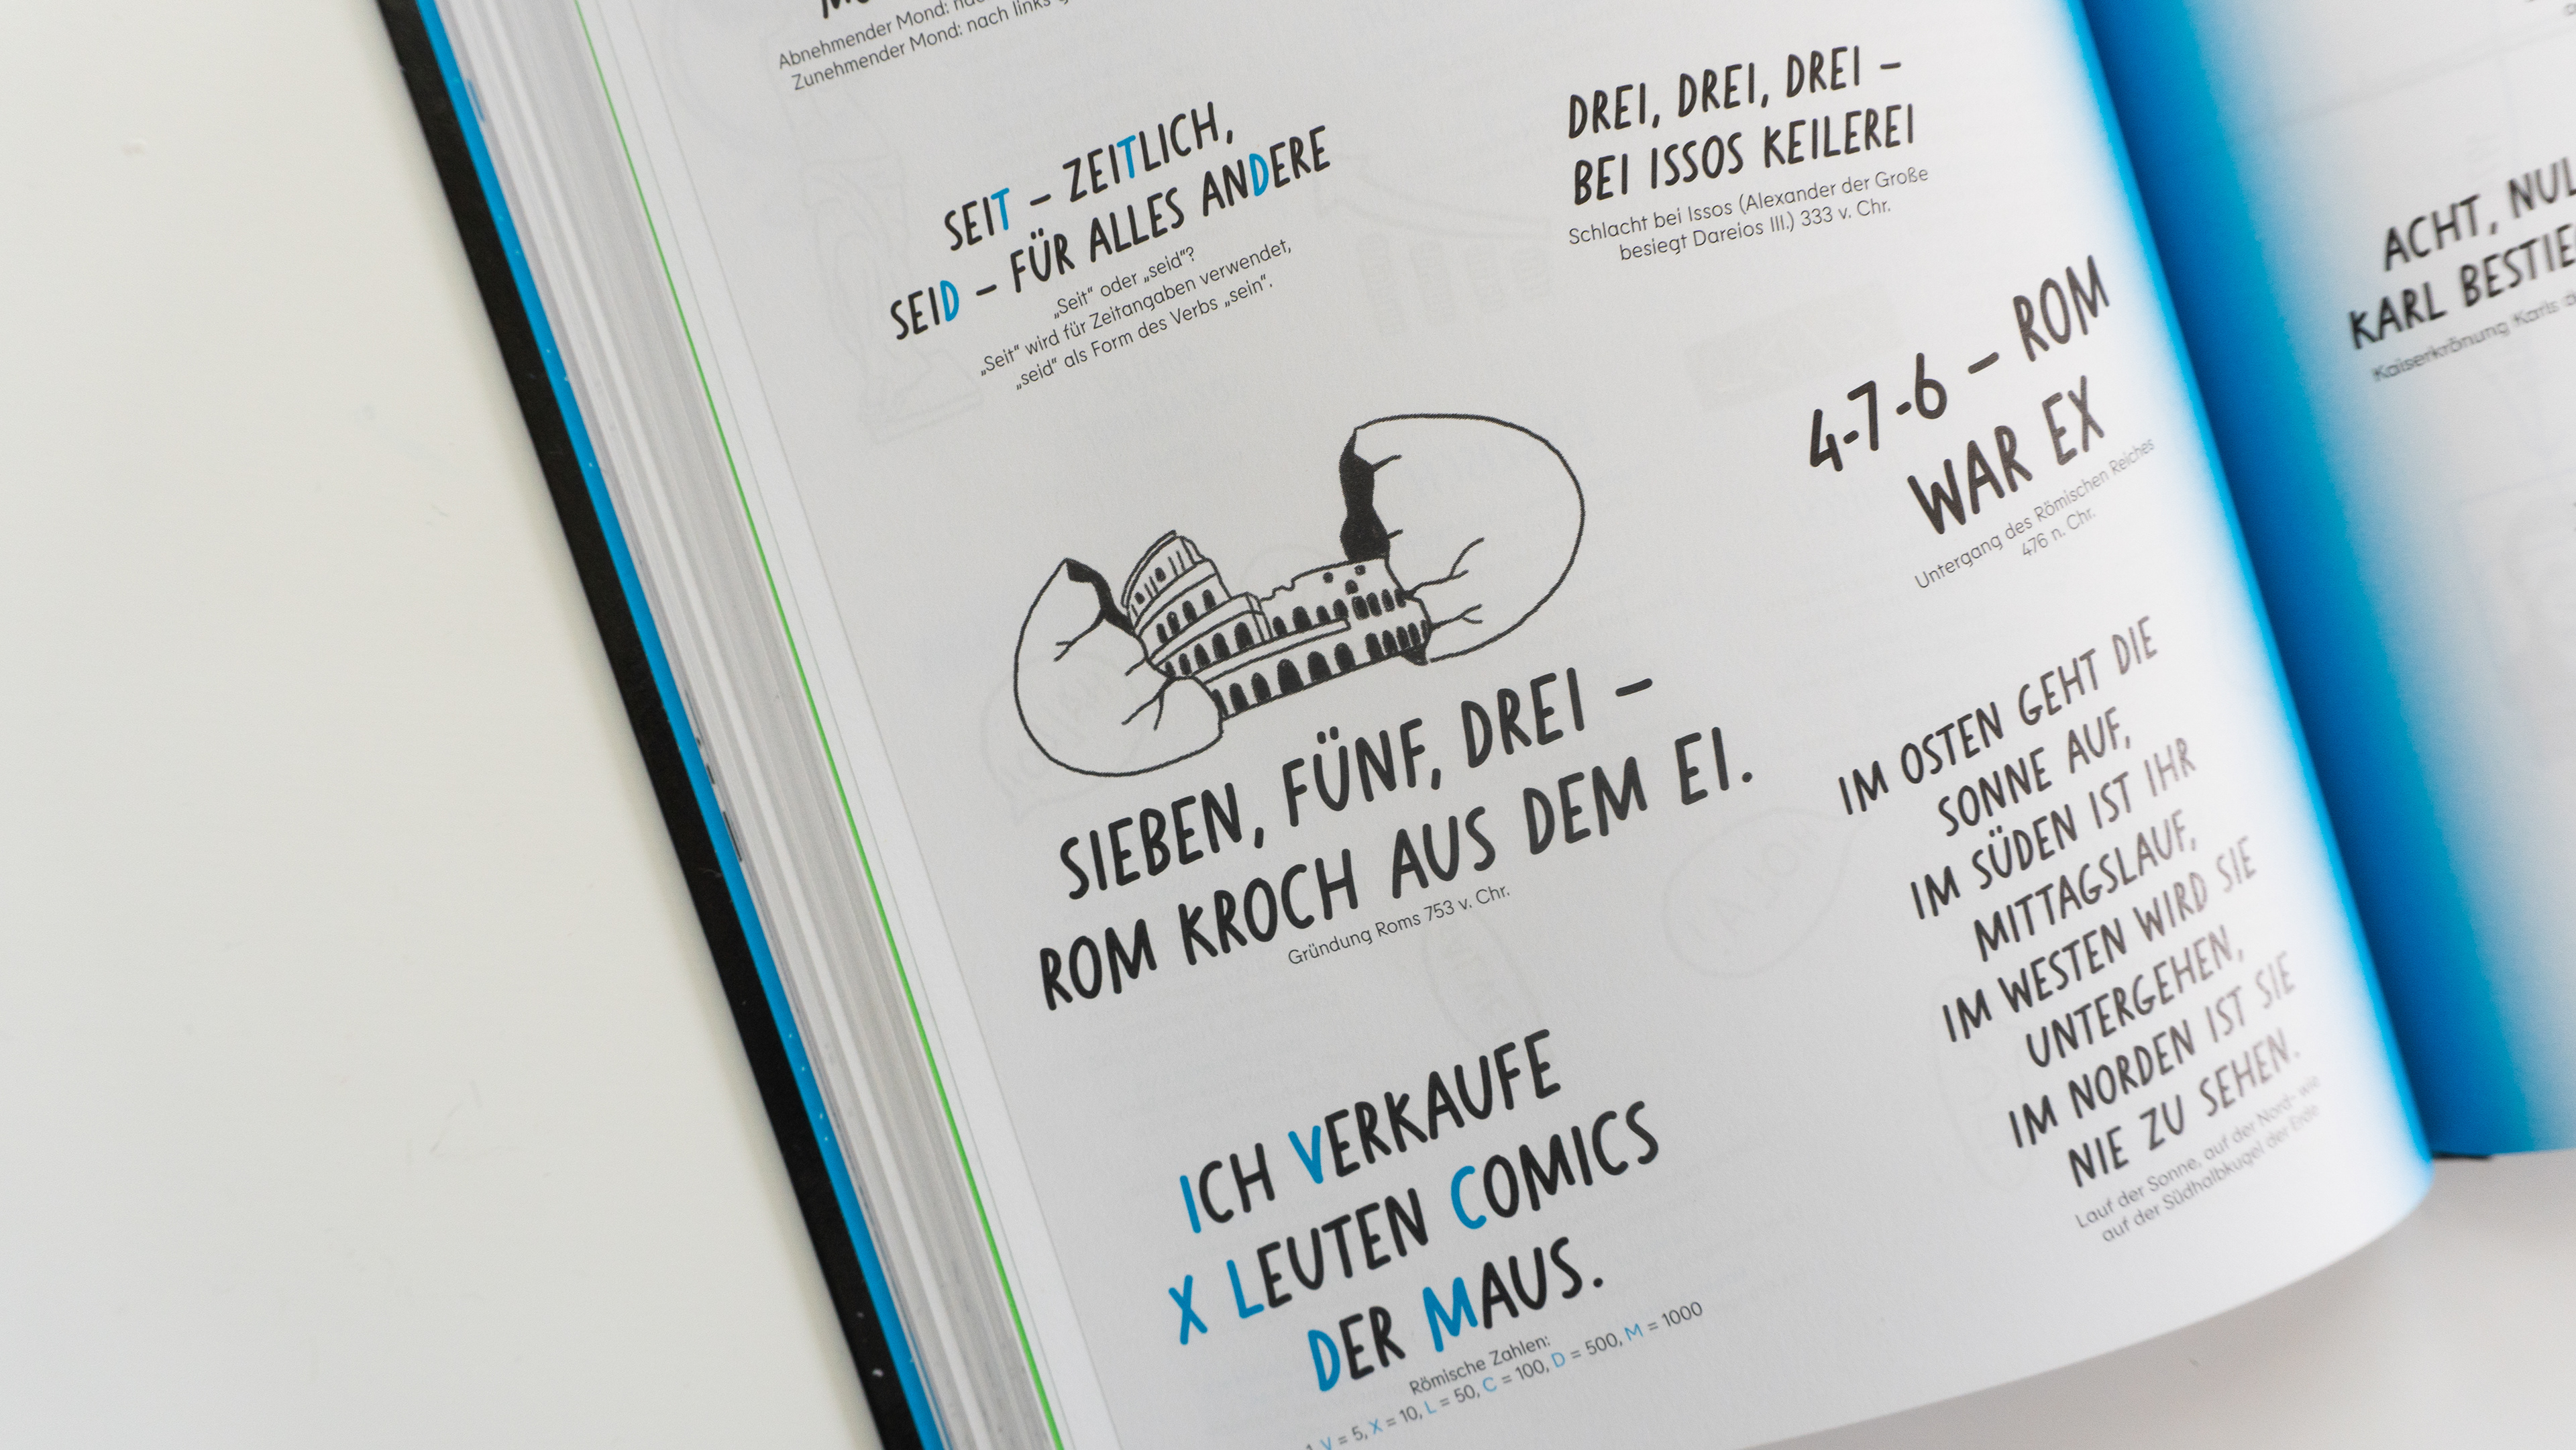 Abnehmender Mond:
Zunehmender Mond: nach links
SEIT – ZEITLICH,
SEID – FÜR ALLES ANDERE
„Seit“ oder „seid“?
„Seit“ wird für Zeitangaben verwendet,
„seid“ als Form des Verbs „sein“.
DREI, DREI, DREI –
BEI ISSOS KEILEREI
Schlacht bei Issos (Alexander der Große
besiegt Dareios III.) 333 v. Chr.
4-7-6 – ROM
WAR EX
Untergang des Römischen Reiches
476 n. Chr.
SIEBEN, FÜNF, DREI –
ROM KROCH AUS DEM EI.
Gründung Roms 753 v. Chr.
IM OSTEN GEHT DIE
SONNE AUF,
IM SÜDEN IST IHR
MITTAGSLAUF,
IM WESTEN WIRD SIE
UNTERGEHEN,
IM NORDEN IST SIE
NIE ZU SEHEN.
Lauf der Sonne, auf der Nord- wie
auf der Südhalbkugel der Erde
ICH VERKAUFE
X LEUTEN COMICS
DER MAUS.
Römische Zahlen:
V = 5, X = 10, L = 50, C = 100, D = 500, M = 1000
ACHT,
KARL
Kaiserkrönung Karls